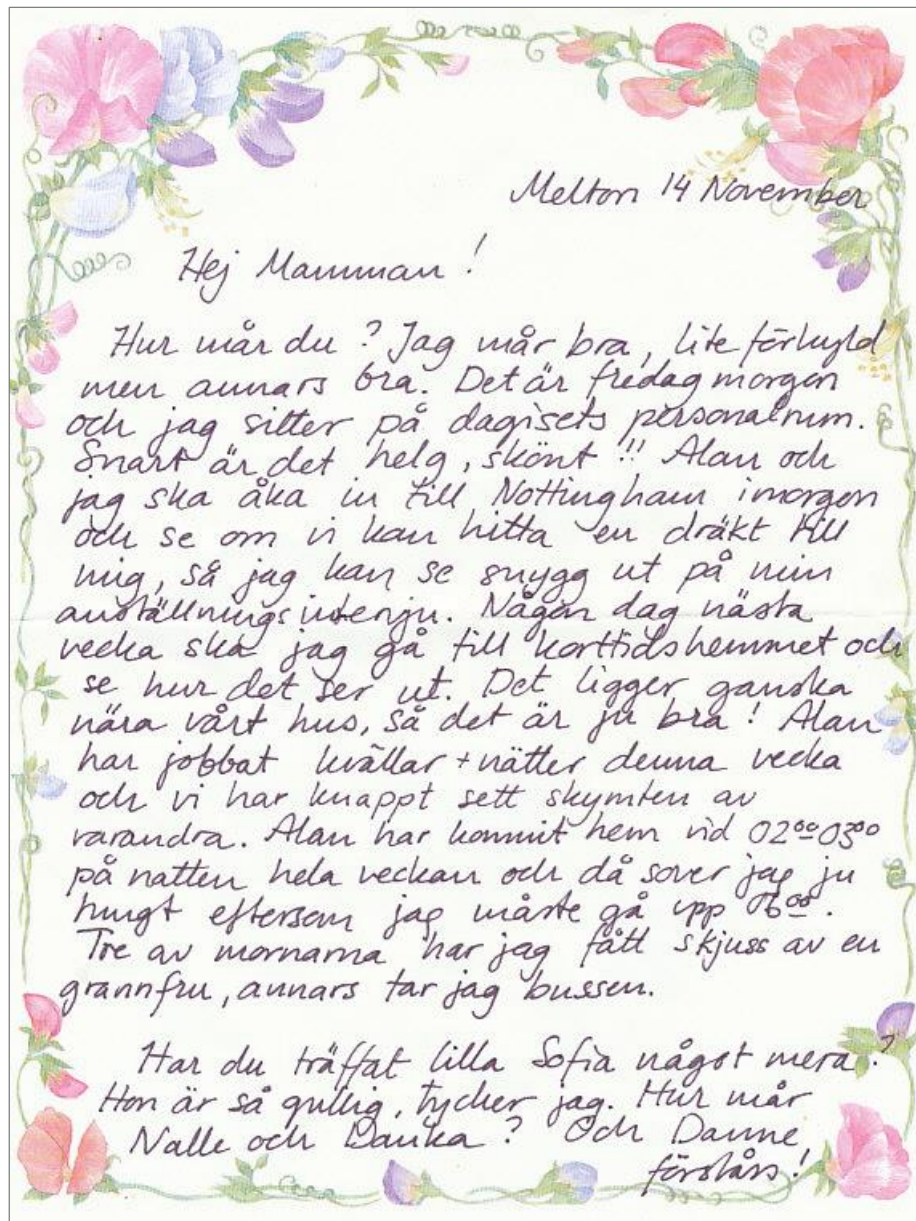 Melton 14 November
Hej Mamman!
Hur mår du? Jag mår bra, lite förkyld
men annars bra. Det är fredag morgon
och jag sitter på dagisets personalrum.
Snart är det helg, skönt!! Alan och
jag ska åka in till Nottingham imorgon
och se om vi kan hitta en dräkt till
mig, så jag kan se snygg ut på min
anställningsintervju. Någon dag nästa
vecka ska jag gå till korttidshemmet och
se hur det ser ut. Det ligger ganska
nära vårt hus, så det är ju bra! Alan
har jobbat kvällar + nätter denna vecka
och vi har knappt sett skymten av
varandra. Alan har kommit hem vid 02⁰⁰ 03⁰⁰
på natten hela veckan och då sover jag ju
tungt eftersom jag måste gå upp 06⁰⁰.
Tre av mornarna har jag fått skjuss av en
grannfru, annars tar jag bussen.
Har du träffat lilla Sofia något mera?
Hon är så gullig, tycker jag. Hur mår
Nalle och Danka? Och Danne
förstårs!